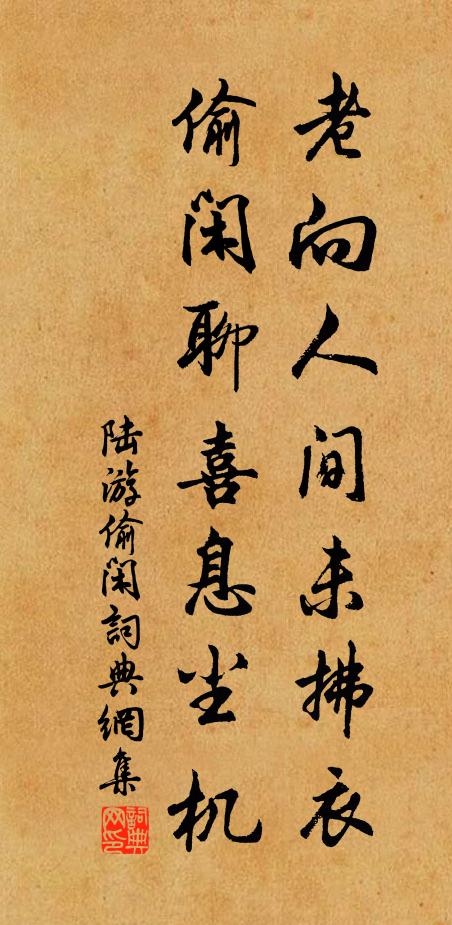 老向人间未拂衣
偷闲聊喜息尘机
陆游偷闲詞典網集
詞典网印